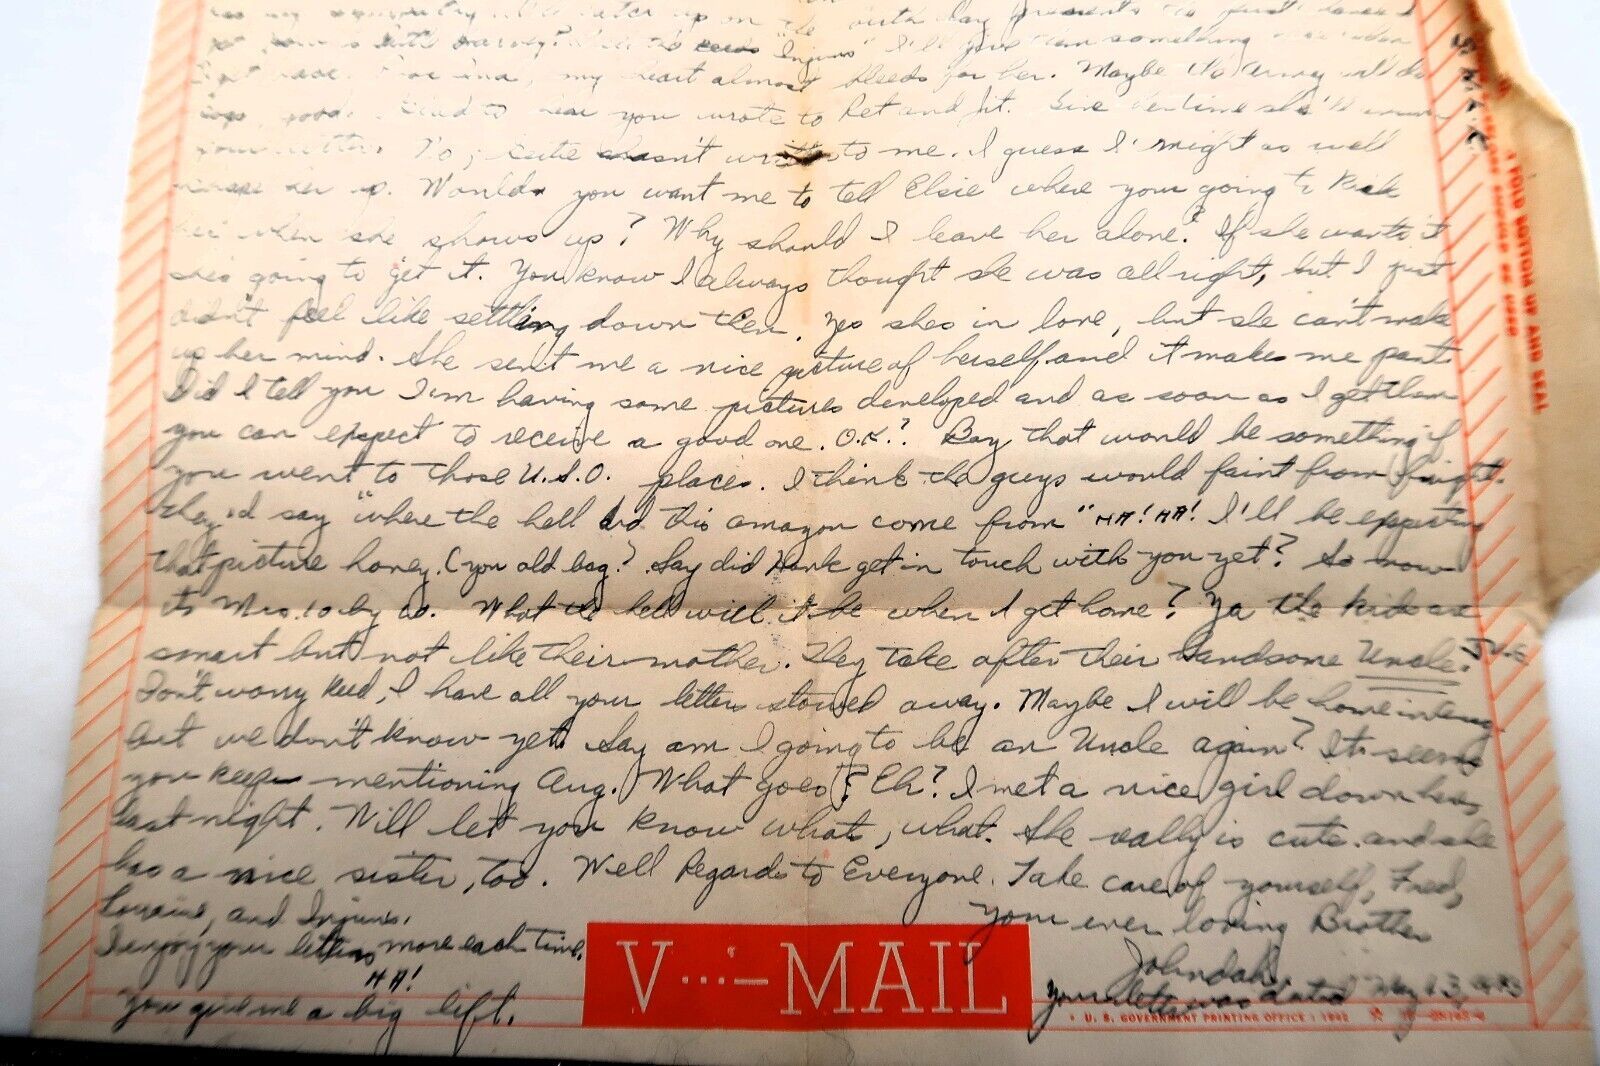 up on the birth day presents
with Harvey? And the kids "Injuns" I'll give them something
my heart almost bleeds for her. Maybe the Army will do
good. Glad to hear you wrote to Pet and Jit. Give her time she'll
your letter. No, Katie hasn't written to me. I guess I might as well
her up. Would you want me to tell Elsie where your going to kick
her when she shows up? Why should I leave her alone? If she wants it
she's going to get it. You know I always thought she was allright, but I just
didn't feel like settling down then. Yes shes in love, but she can't make
up her mind. She sent me a nice picture of herself and it makes me pant.
Did I tell you I am having some pictures developed and as soon as I get them
you can expect to receive a good one. O.K.? Boy that would be something if
you went to those U.S.O. places. I think the guys would faint from fright.
They'd say "where the hell did this amazon come from" HA! HA! I'll be expecting
that picture honey. (you old bag? Say did Hank get in touch with you yet? So now
it's Mrs. 10 by 10. What the hell will it be when I get home? Ya the kids are
smart but not like their mother. They take after their handsome Uncle.
Don't worry Keed, I have all your letters stowed away. Maybe I will be home
but we don't know yet. Say am I going to be an Uncle again? It seems
you keep mentioning Aug. What goes? Eh? I met a nice girl down here
last night. Will let you know whats, what. She really is cute. and she
has a nice sister, too. Well Regards to Everyone. Take care of yourself, Fred,
Lorraine, and Injuns.
your ever loving Brother
I enjoy your letters more each time.
HA!
You give me a big lift.
V···—MAIL
Your letter was dated May 13, 1943
U. S. GOVERNMENT PRINTING OFFICE : 1942
FOLD BOTTOM UP AND SEAL